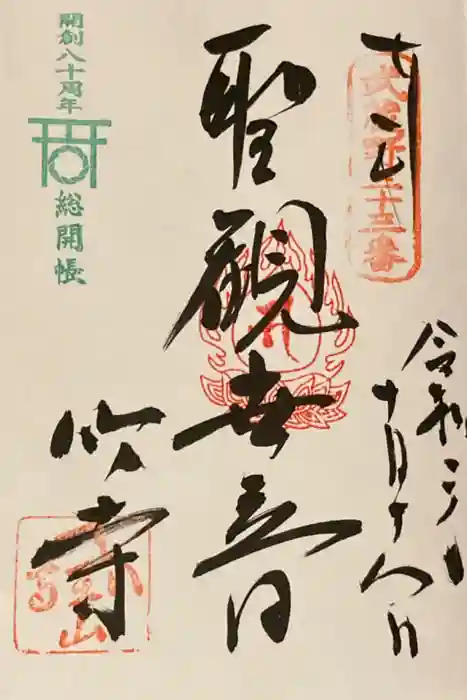 奉拝
武蔵野三十三番
令和二年
十月十八日
聖観世音
竹寺
開創八十周年
総開帳